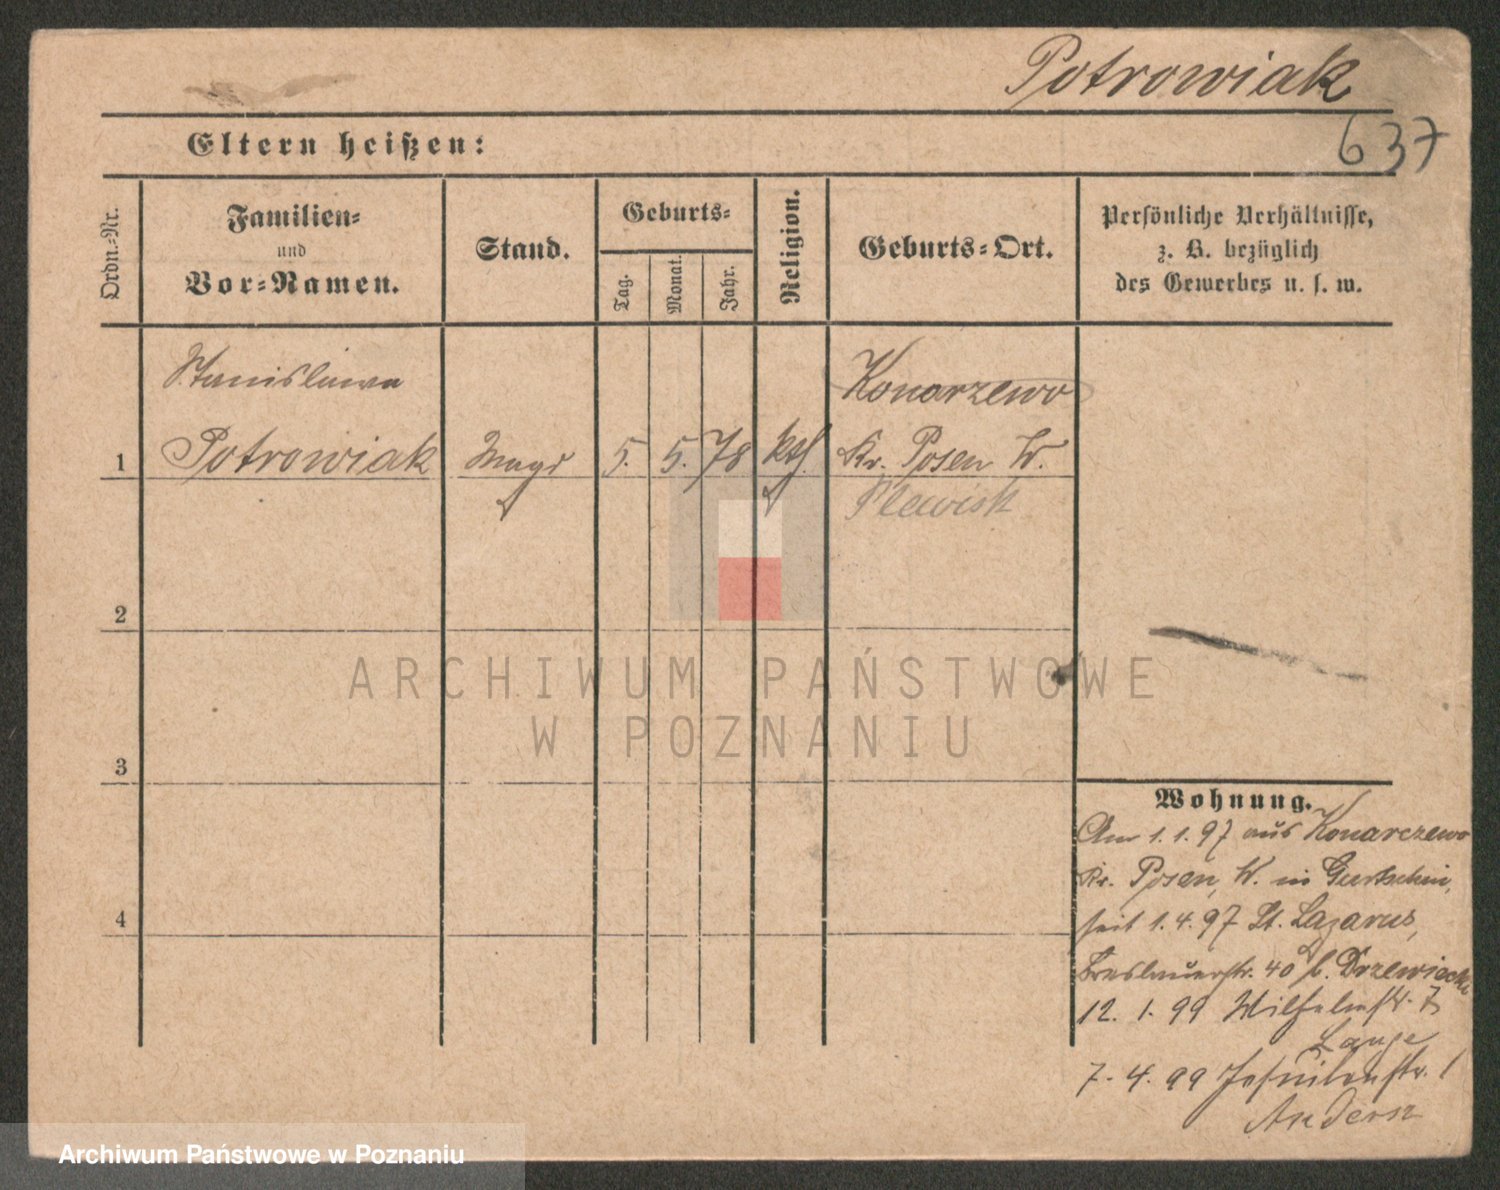 Potrowiak
637
Eltern heißen:
Ordn.-Nr.
Familien-
und
Vor-Namen.
Stand.
Geburts-
Tag.
Monat.
Jahr.
Religion.
Geburts-Ort.
Persönliche Verhältnisse,
z. B. bezüglich
des Gewerbes u. s. w.
Stanislawa
Konarzewo
1 Potrowiak Magd 5. 5. 78 kth. Kr. Posen W.
Plewisk
2
3
4
ARCHIWUM PAŃSTWOWE
W POZNANIU
Wohnung.
Am 1.1.97 aus Konarczewo
Kr. Posen, W. in Gurtschin,
seit 1.4.97 St. Lazarus,
Breslauerstr. 40 b. Drzewiecki
12. 1. 99 Wilhelmstr. 7
Lange
7. 4. 99 Jesuitenstr. 1
Andersz
Archiwum Państwowe w Poznaniu